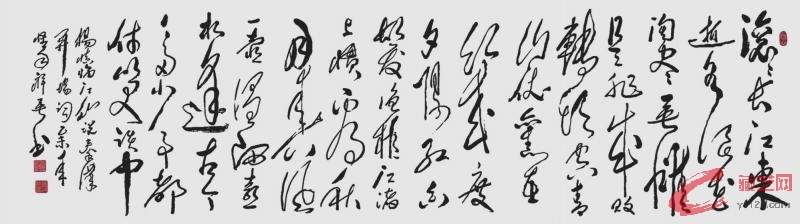 滚滚长江東
逝水浪花
淘尽英雄
是非成败
转头空青
山依旧在
几度
夕阳红白
发渔樵江渚
上惯看秋
月春风
一壶浊酒喜
相逢古今
多少事都
付笑谈中
杨慎临江仙说秦汉
开场词
书
藏艺网